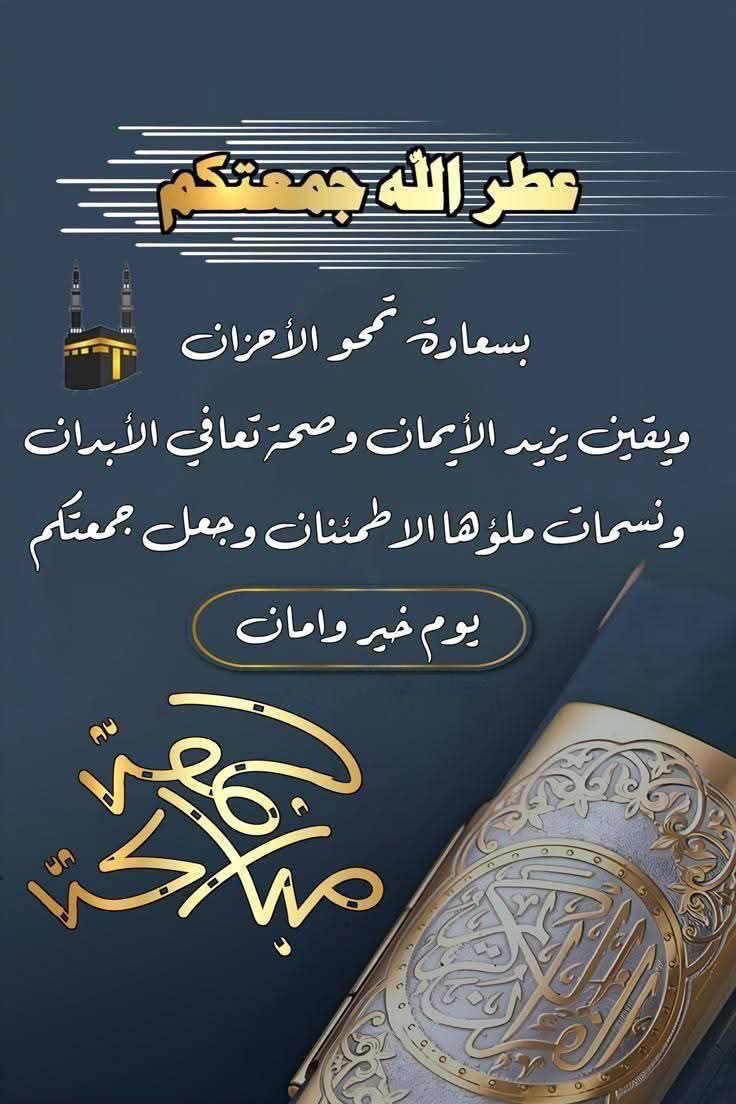 عطر الله جمعتكم
بسعادة تمحو الأحزان
ويقين يزيد الأيمان وصحة تعافي الأبدان
ونسمات ملؤها الاطمئنان وجعل جمعتكم
يوم خير وامان
جمعة
مباركة
القرآن الكريم